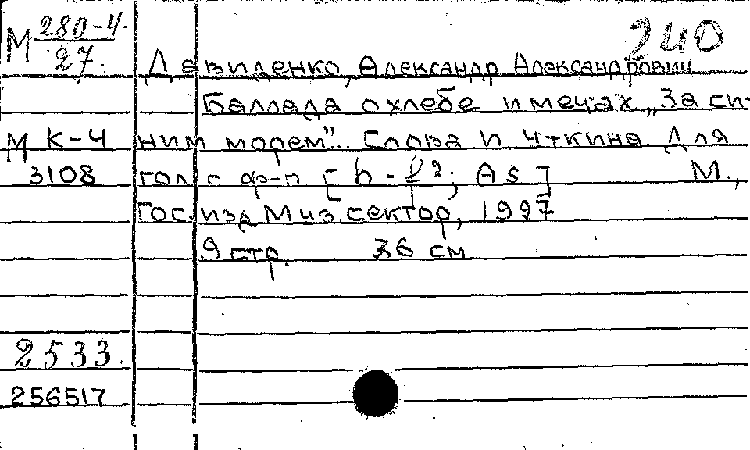 М 280-4
27.
240
Давиденко, Александр Александрович
Баллада о хлебе и мечах „За си-
М К-4 ним морем". Слова И Уткина Для
3108 гол с ф-п [h - g²; As] М.,
Гос. изд Муз сектор, 1927
9 стр. 36 см
2533.
256517